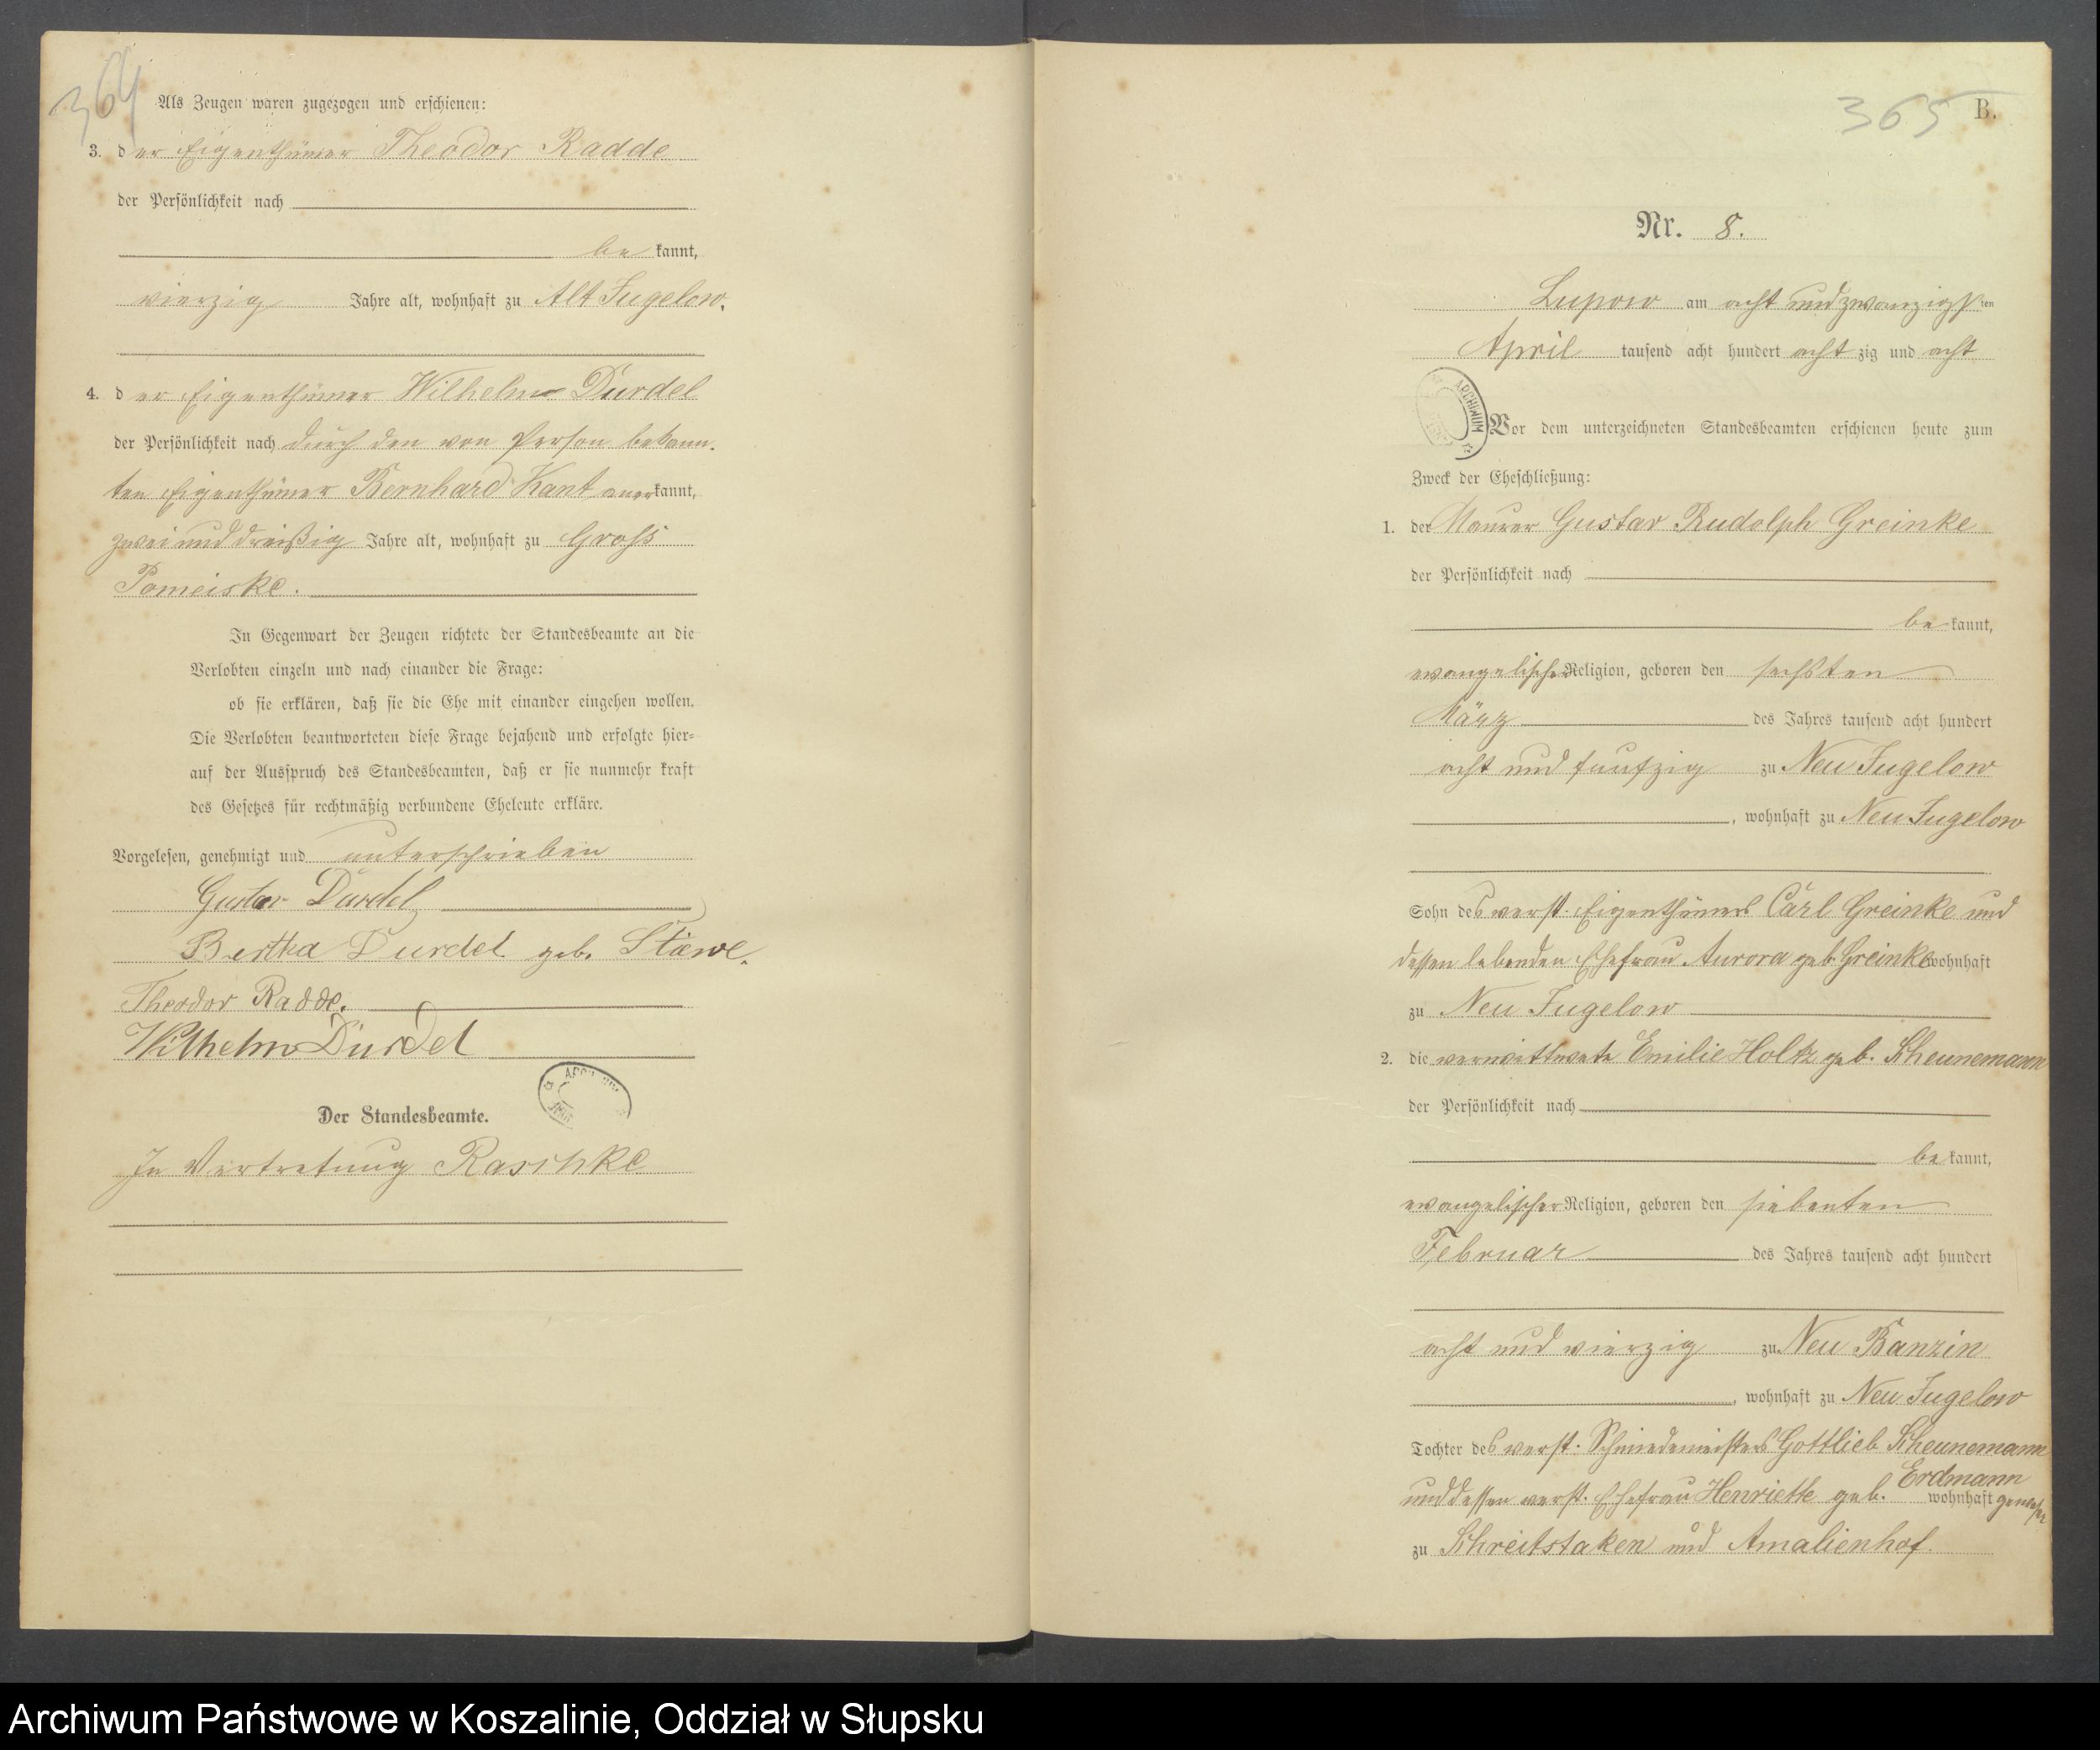 364
Als Zeugen waren zugezogen und erschienen:
3. der Eigenthümer Theodor Radde
der Persönlichkeit nach
be kannt,
vierzig Jahre alt, wohnhaft zu Alt Jugelow.
4. der Eigenthümer Wilhelm Durdel
der Persönlichkeit nach durch den von Person bekann-
ten Eigenthümer Bernhard Kant anerkannt,
zwei und dreißig Jahre alt, wohnhaft zu Gross
Pomeiske.
In Gegenwart der Zeugen richtete der Standesbeamte an die
Verlobten einzeln und nach einander die Frage:
ob sie erklären, daß sie die Ehe mit einander eingehen wollen.
Die Verlobten beantworteten diese Frage bejahend und erfolgte hier-
auf der Ausspruch des Standesbeamten, daß er sie nunmehr kraft
des Gesetzes für rechtmäßig verbundene Eheleute erkläre.
Vorgelesen, genehmigt und unterschrieben
Gustav Durdel
Bertha Durdel geb. Stäwe.
Theodor Radde.
Wilhelm Durdel
Der Standesbeamte.
In Vertretung Raschke
365 B.
Nr. 8.
Lupow am acht und zwanzigsten
April tausend acht hundert acht zig und acht
ARCHIWUM
Vor dem unterzeichneten Standesbeamten erschienen heute zum
Zweck der Eheschließung:
1. der Maurer Gustav Rudolph Greinke
der Persönlichkeit nach
be kannt,
evangelischer Religion, geboren den sechsten
März des Jahres tausend acht hundert
acht und funfzig zu Neu Jugelow
, wohnhaft zu Neu Jugelow
Sohn des verst. Eigenthümers Carl Greinke und
dessen lebenden Ehefrau Aurora geb. Greinke wohnhaft
zu Neu Jugelow
2. die verwittwete Emilie Holtz geb. Scheunemann
der Persönlichkeit nach
be kannt,
evangelischer Religion, geboren den siebenten
Februar des Jahres tausend acht hundert
acht und vierzig zu Neu Banzin
, wohnhaft zu Neu Jugelow
Tochter des verst. Schmiedemeisters Gottlieb Scheunemann
und dessen verst. Ehefrau Henriette geb. Erdmann wohnhaft
zu Schreitstaken und Amalienhof.
Archiwum Państwowe w Koszalinie, Oddział w Słupsku